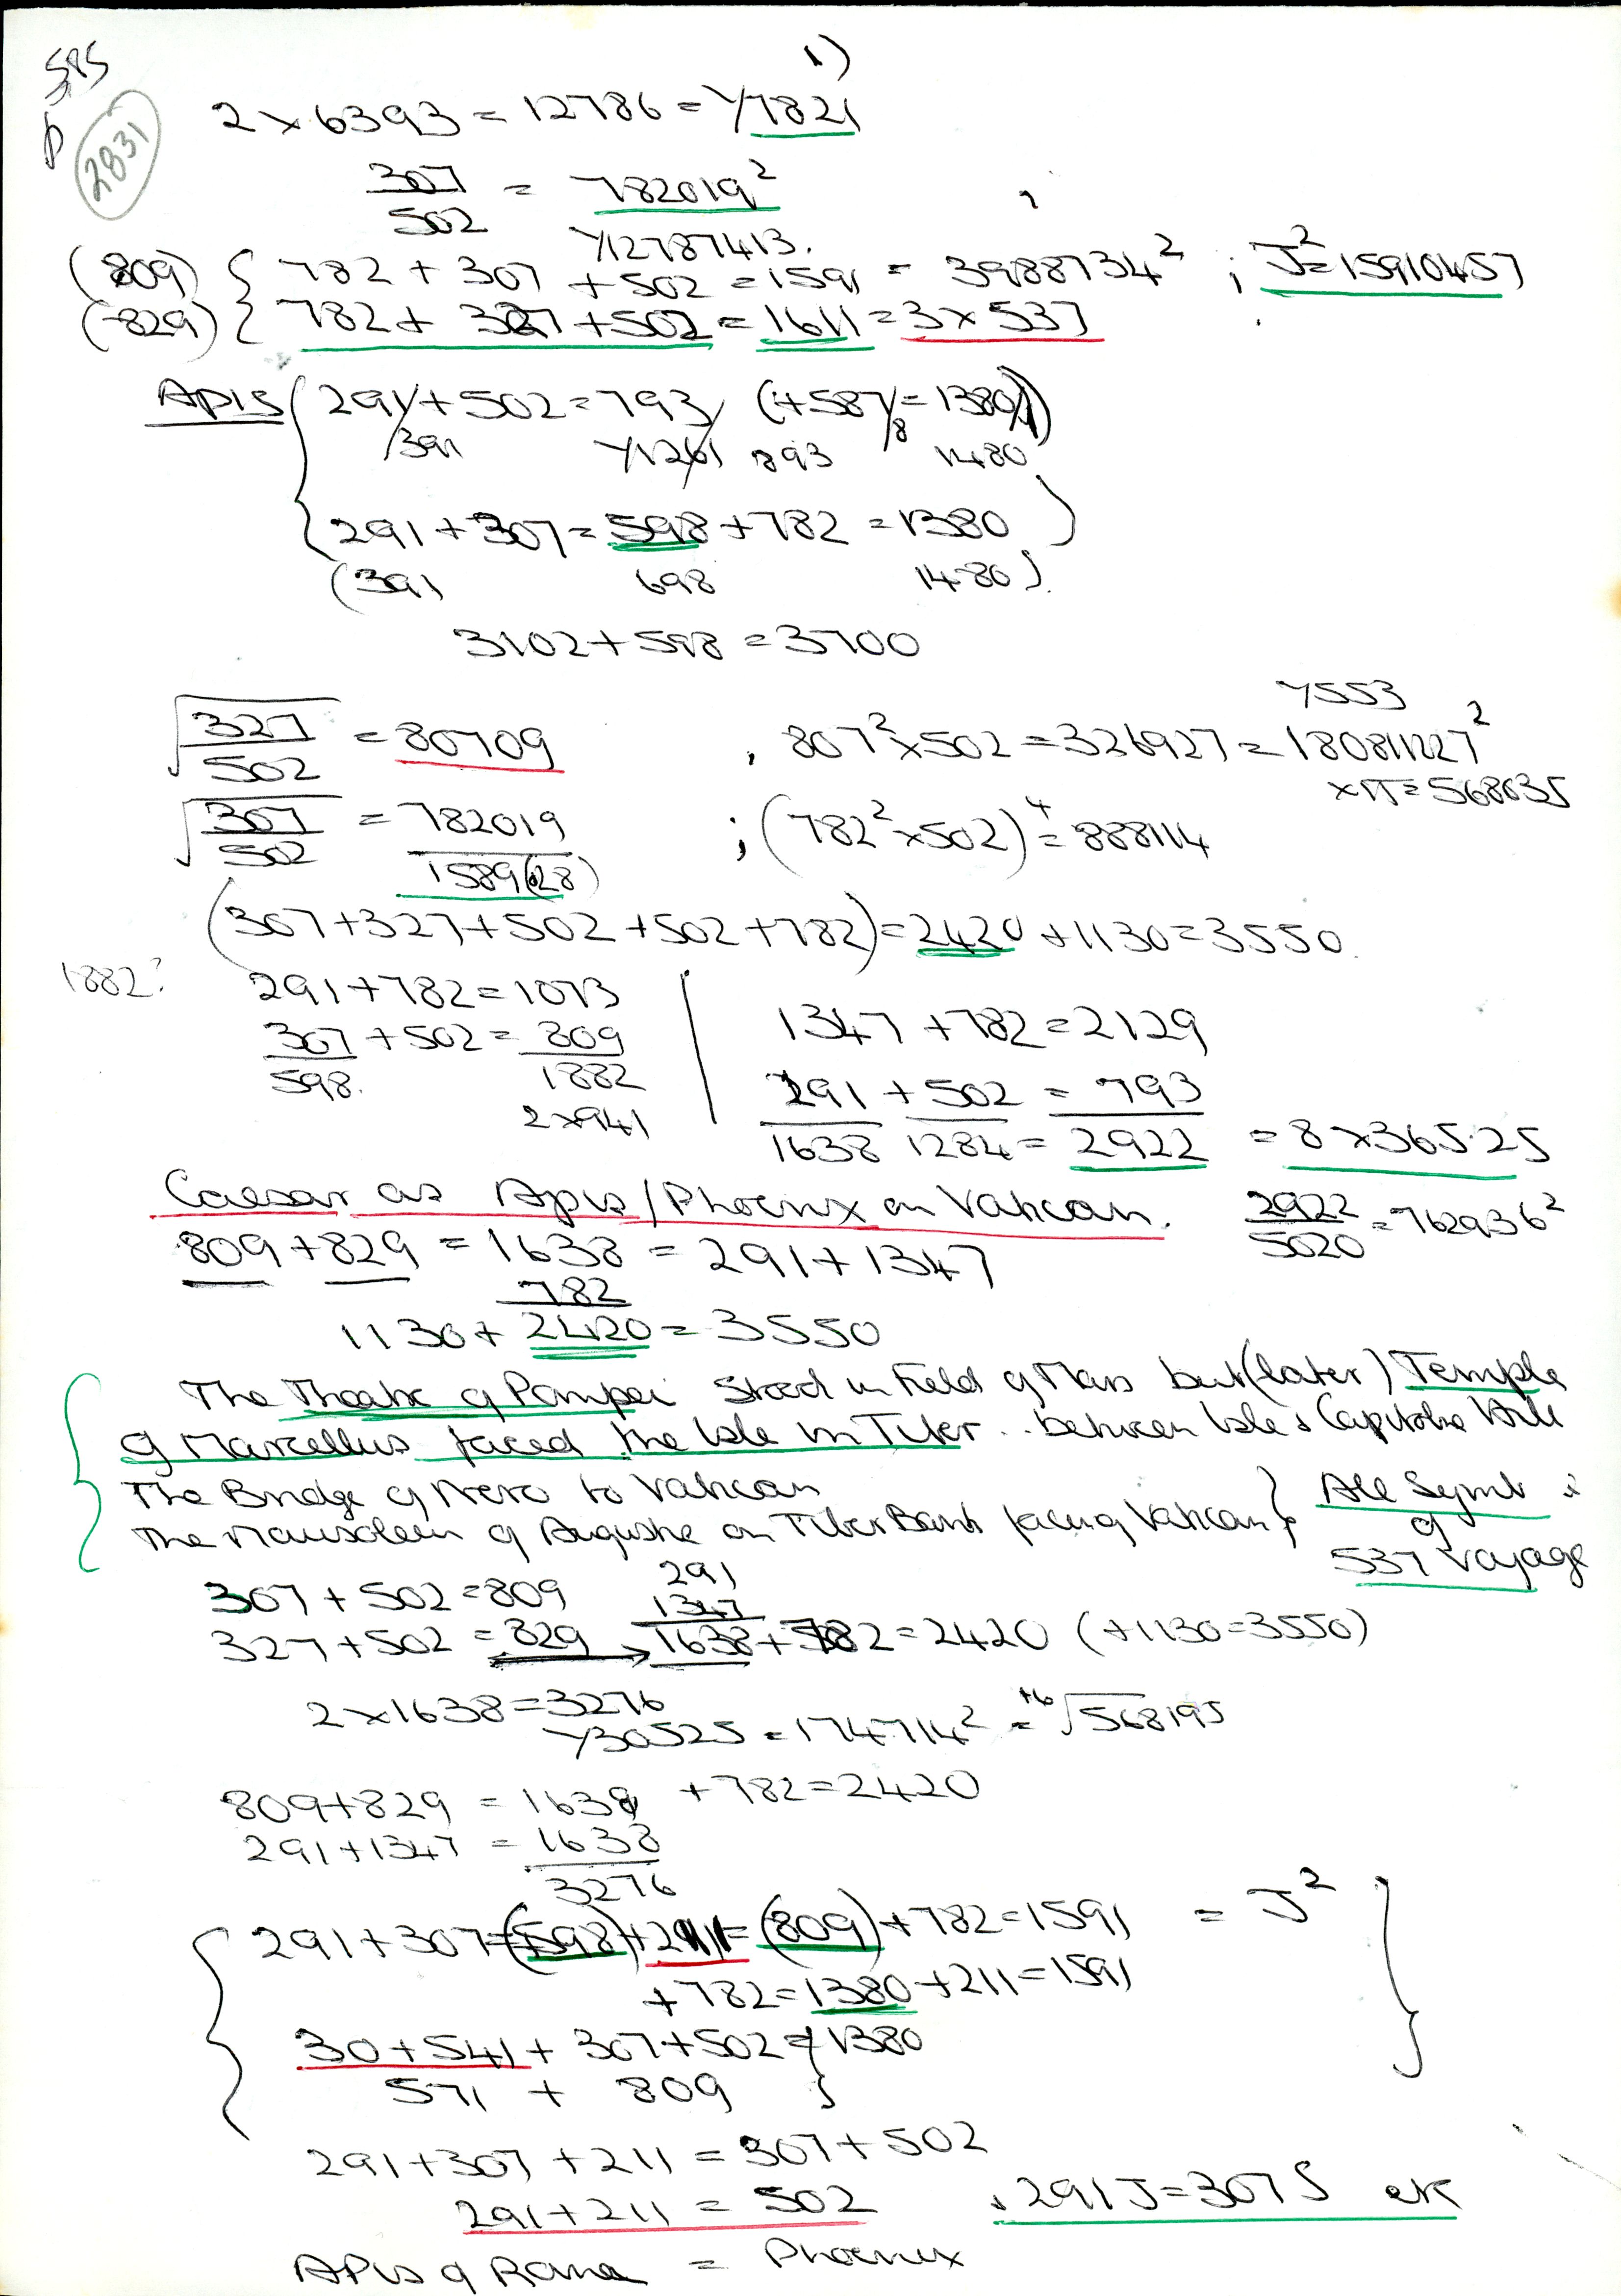 585
2831
1)
2×6393=12786=Y7821
307/502 = 782019²
Y12787413.
(809) { 782 + 307 + 502 = 1591 = 3988734² ; J²=15910457
(829) { 782 + 327 + 502 = 1611 = 3×537
Apis { 291/ + 502 = 793/ (+587/ = 1380/)
/391 Y1261 893 /8 1480
291 + 307 = 598 + 782 = 1380 )
(391 698 1480)
3102 + 598 = 3700
Y553
√327/502 = 80709 , 807²×502 = 326927 = 180811227²
×π=568035
√307/502 = 782019 ; (782²×502)⁴ = 888114
1589(28)
(307+327+502+502+782)=2420+1130=3550
1882? 291+782=1073
307+502=809
598. 1882
2×941
1347+782=2129
291+502=793
1638 1284=2922 = 8×365.25
Caesar as Apis/Phoenix on Vatican. 2922/5020 = 762936²
809+829=1638=291+1347
782
1130+2420=3550
The Theatre of Pompei Stood in Field of Mars but (later) Temple
of Marcellus faced the Isle in Tiber.. between Isle & Capitoline Hill
The Bridge of Nero to Vatican
The Mausoleum of Auguste on Tiber Bank facing Vatican } All Symb
of
537 Voyage
307+502=809 291
1347
327+502=829 → 1638+782=2420 (+1130=3550)
2×1638=3276
Y30525=174714²=⁺⁶√568195
809+829=1638 +782=2420
291+1347=1638
3276
291+307=(598)+211=(809)+782=1591 = J²
+782=1380+211=1591
30+541+307+502=1380
571 + 809
291+307+211=307+502
291+211=502 291J=307S etc
Apis of Rome = Phoenix